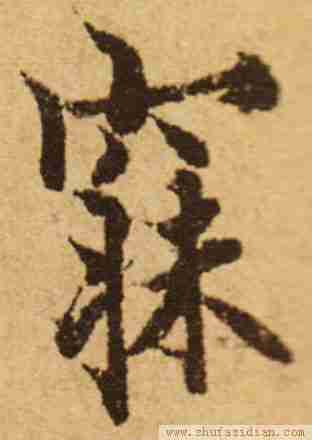 寐
www.shufazidian.com